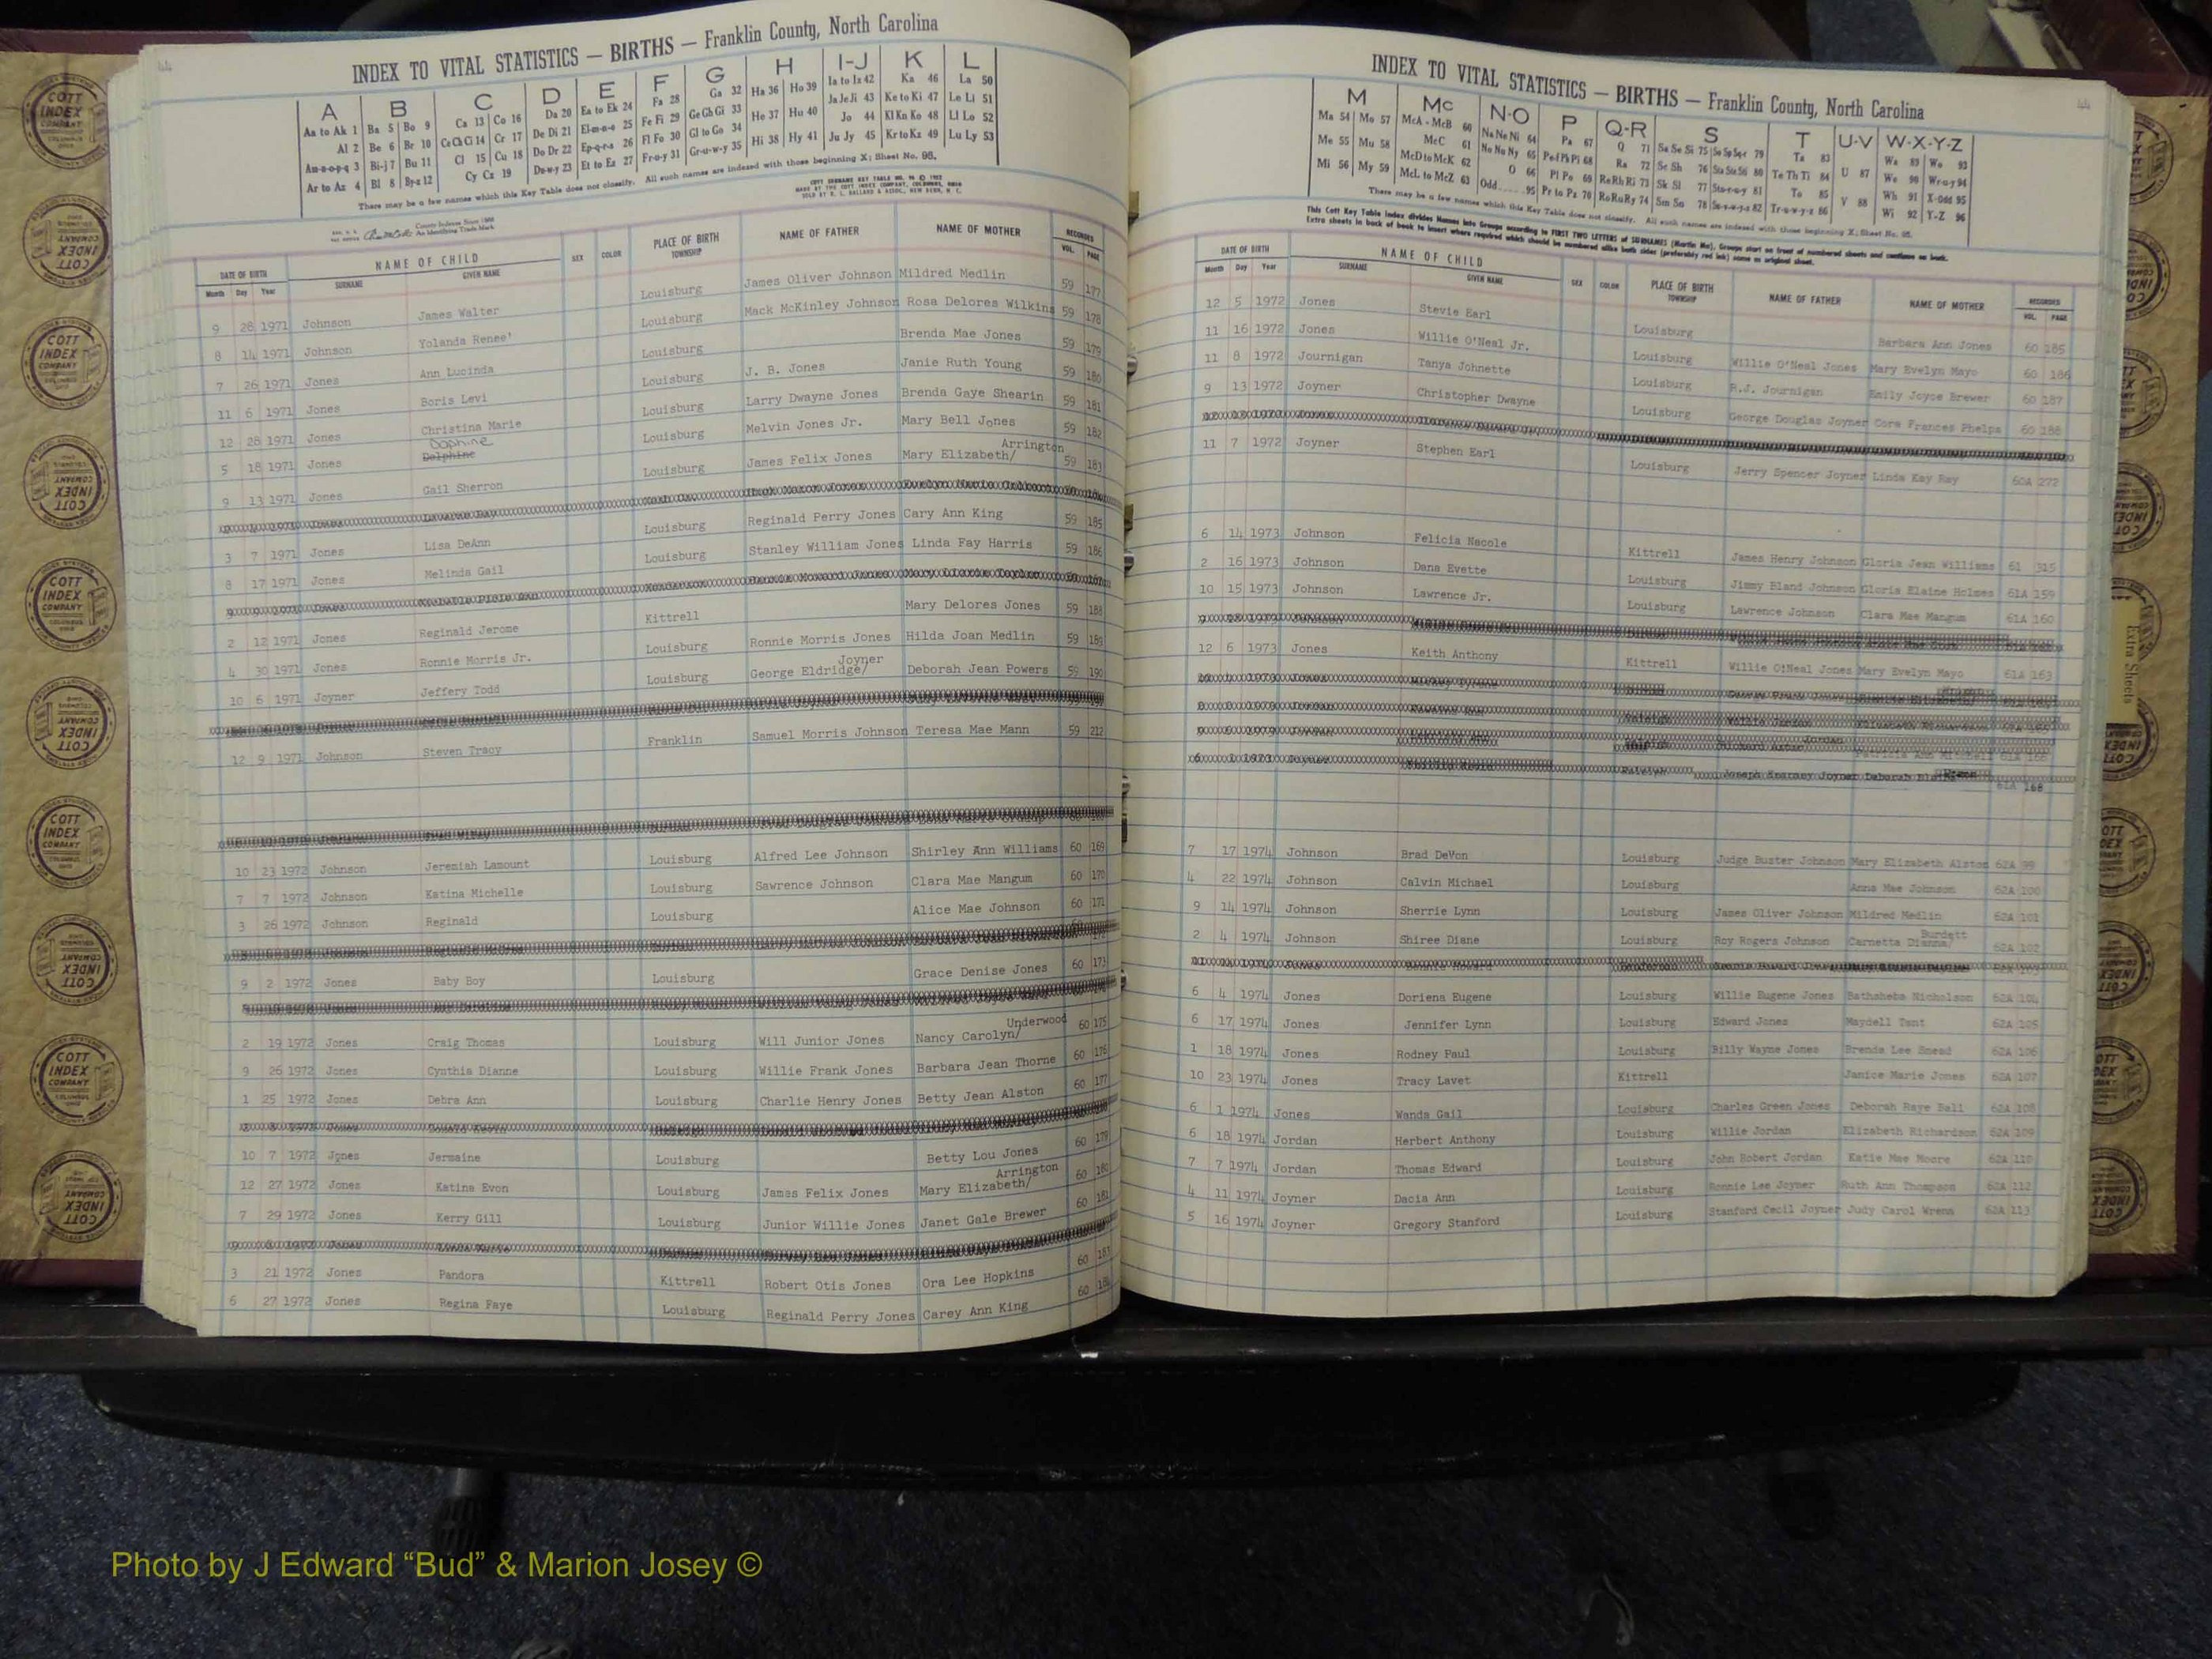 44
INDEX TO VITAL STATISTICS — BIRTHS — Franklin County, North Carolina
A B C D E F G H I-J K L
Aa to Ak 1 Ba 5 Bo 9 Ca 13 Co 16 Da 20 Ea to Ek 24 Fa 28 Ga 32 Ha 36 Ho 39 Ia to Iz 42 Ka 46 La 50
Al 2 Be 6 Br 10 Ce Ch Ci 14 Cr 17 De Di 21 El-m-n-o 25 Fe Fi 29 Ge Gh Gi 33 He 37 Hu 40 Ja Je Ji 43 Ke to Ki 47 Le Li 51
Am-n-o-p-q 3 Bi-j 7 Bu 11 Cl 15 Cu 18 Do Dr 22 Ep-q-r-s 26 Fl Fo 30 Gl to Go 34 Hi 38 Hy 41 Jo 44 Kl Kn Ko 48 Ll Lo 52
Ar to Az 4 Bl 8 By-z 12 Cy Cz 19 Du-w-y 23 Et to Ez 27 Fr-u-y 31 Gr-u-w-y 35 Ju Jy 45 Kr to Kz 49 Lu Ly 53
There may be a few names which this Key Table does not classify. All such names are indexed with those beginning X; Sheet No. 95.
DATE OF BIRTH NAME OF CHILD SEX COLOR PLACE OF BIRTH NAME OF FATHER NAME OF MOTHER RECORDED
Month Day Year SURNAME GIVEN NAME TOWNSHIP VOL. PAGE
9 28 1971 Johnson James Walter Louisburg James Oliver Johnson Mildred Medlin 59 177
8 14 1971 Johnson Yolanda Renee' Louisburg Mack McKinley Johnson Rosa Delores Wilkins 59 178
7 26 1971 Jones Ann Lucinda Louisburg Brenda Mae Jones 59 179
11 6 1971 Jones Boris Levi Louisburg J. B. Jones Janie Ruth Young 59 180
12 28 1971 Jones Christina Marie Louisburg Larry Dwayne Jones Brenda Gaye Shearin 59 181
Daphine
5 18 1971 Jones Delphine Louisburg Melvin Jones Jr. Mary Bell Jones 59 182
9 13 1971 Jones Gail Sherron Louisburg James Felix Jones Mary Elizabeth/ Arrington 59 183
3 7 1971 Jones Lisa DeAnn Louisburg Reginald Perry Jones Cary Ann King 59 185
8 17 1971 Jones Melinda Gail Louisburg Stanley William Jones Linda Fay Harris 59 186
2 12 1971 Jones Reginald Jerome Kittrell Mary Delores Jones 59 188
4 30 1971 Jones Ronnie Morris Jr. Louisburg Ronnie Morris Jones Hilda Joan Medlin 59 189
10 6 1971 Joyner Jeffery Todd Louisburg George Eldridge/ Joyner Deborah Jean Powers 59 190
12 9 1971 Johnson Steven Tracy Franklin Samuel Morris Johnson Teresa Mae Mann 59 212
10 23 1972 Johnson Jeremiah Lamount Louisburg Alfred Lee Johnson Shirley Ann Williams 60 169
7 7 1972 Johnson Katina Michelle Louisburg Sawrence Johnson Clara Mae Mangum 60 170
3 26 1972 Johnson Reginald Louisburg Alice Mae Johnson 60 171
9 2 1972 Jones Baby Boy Louisburg Grace Denise Jones 60 173
2 19 1972 Jones Craig Thomas Louisburg Will Junior Jones Nancy Carolyn/ Underwood 60 175
9 26 1972 Jones Cynthia Dianne Louisburg Willie Frank Jones Barbara Jean Thorne 60 176
1 25 1972 Jones Debra Ann Louisburg Charlie Henry Jones Betty Jean Alston 60 177
10 7 1972 Jones Jermaine Louisburg Betty Lou Jones 60 179
12 27 1972 Jones Katina Evon Louisburg James Felix Jones Mary Elizabeth/ Arrington 60 180
7 29 1972 Jones Kerry Gill Louisburg Junior Willie Jones Janet Gale Brewer 60 181
3 21 1972 Jones Pandora Kittrell Robert Otis Jones Ora Lee Hopkins 60 183
6 27 1972 Jones Regina Faye Louisburg Reginald Perry Jones Carey Ann King 60 184
44
INDEX TO VITAL STATISTICS — BIRTHS — Franklin County, North Carolina
M Mc N-O P Q-R S T U-V W-X-Y-Z
Ma 54 Mo 57 McA - McB 60 Na Ne Ni 64 Pa 67 Q 71 Sa Se Si 75 So Sp Sq-r 79 Ta 83 U 87 Wa 89 Wo 93
Me 55 Mu 58 McC 61 No Nu Ny 65 Pe Pf Ph Pi 68 Ra 72 Sc Sh 76 Sta Ste Sti 80 Te Th Ti 84 We 90 Wr-u-y 94
Mi 56 My 59 McD to McK 62 O 66 Pl Po 69 Re Rh Ri 73 Sk Sl 77 Sto-r-u-y 81 To 85 V 88 Wh 91 X-Odd 95
McL to McZ 63 Odd 95 Pr to Pz 70 Ro Ru Ry 74 Sm Sn 78 Su-v-w-y-z 82 Tr-u-w-y-z 86 Wi 92 Y-Z 96
There may be a few names which this Key Table does not classify. All such names are indexed with those beginning X; Sheet No. 95.
This Cott Key Table Index divides Names into Groups according to FIRST TWO LETTERS of SURNAMES (Martin Ma). Groups start on front of numbered sheets and continue on back.
Extra sheets in back of book to insert where required which should be numbered alike both sides (preferably red ink) same as original sheet.
DATE OF BIRTH NAME OF CHILD SEX COLOR PLACE OF BIRTH NAME OF FATHER NAME OF MOTHER RECORDED
Month Day Year SURNAME GIVEN NAME TOWNSHIP VOL. PAGE
12 5 1972 Jones Stevie Earl Louisburg Barbara Ann Jones 60 185
11 16 1972 Jones Willie O'Neal Jr. Louisburg Willie O'Neal Jones Mary Evelyn Mayo 60 186
11 8 1972 Journigan Tanya Johnette Louisburg R.J. Journigan Emily Joyce Brewer 60 187
9 13 1972 Joyner Christopher Dwayne Louisburg George Douglas Joyner Cora Frances Phelps 60 188
11 7 1972 Joyner Stephen Earl Louisburg Jerry Spencer Joyner Linda Kay Ray 60A 272
6 14 1973 Johnson Felicia Nacole Kittrell James Henry Johnson Gloria Jean Williams 61 315
2 16 1973 Johnson Dana Evette Louisburg Jimmy Bland Johnson Gloris Elaine Holmes 61A 159
10 15 1973 Johnson Lawrence Jr. Louisburg Lawrence Johnson Clara Mae Mangum 61A 160
12 6 1973 Jones Keith Anthony Kittrell Willie O'Neal Jones Mary Evelyn Mayo 61A 163
61A 168
7 17 1974 Johnson Brad DeVon Louisburg Judge Buster Johnson Mary Elizabeth Alston 62A 99
4 22 1974 Johnson Calvin Michael Louisburg Anna Mae Johnson 62A 100
9 14 1974 Johnson Sherrie Lynn Louisburg James Oliver Johnson Mildred Medlin 62A 101
2 4 1974 Johnson Shiree Diane Louisburg Roy Rogers Johnson Carnetta Dianna/ Burdett 62A 102
6 4 1974 Jones Doriena Eugene Louisburg Willie Eugene Jones Bathsheba Nicholson 62A 104
6 17 1974 Jones Jennifer Lynn Louisburg Edward Jones Maydell Tant 62A 105
1 18 1974 Jones Rodney Paul Louisburg Billy Wayne Jones Brenda Lee Snead 62A 106
10 23 1974 Jones Tracy Lavet Kittrell Janice Marie Jones 62A 107
6 1 1974 Jones Wanda Gail Louisburg Charles Green Jones Deborah Raye Ball 62A 108
6 18 1974 Jordan Herbert Anthony Louisburg Willie Jordan Elizabeth Richardson 62A 109
7 7 1974 Jordan Thomas Edward Louisburg John Robert Jordan Katie Mae Moore 62A 110
4 11 1974 Joyner Dacia Ann Louisburg Ronnie Lee Joyner Ruth Ann Thompson 62A 112
5 16 1974 Joyner Gregory Stanford Louisburg Stanford Cecil Joyner Judy Carol Wrenn 62A 113
Extra Sheets
COTT INDEX COMPANY
Photo by J Edward “Bud” & Marion Josey ©